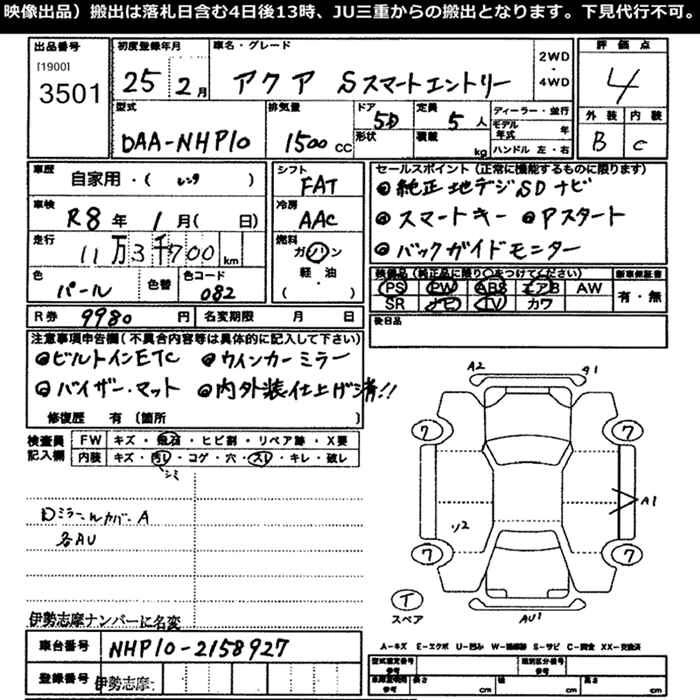 映像出品）搬出は落札日含む4日後13時、JU三重からの搬出となります。下見代行不可。
出品番号 [1900] 3501
初度登録年月 25 2月
車名・グレード アクア Sスマートエントリー
2WD・4WD
評価点 4
外装 B 内装 C
型式 DAA-NHP10
排気量 1500 CC
ドア 5D 形状
定員 5人 積載 kg
ディーラー・並行
モデル年式 年
ハンドル 左・右
車歴 自家用・( レンタ )
車検 R8年 1月( 日)
走行 11万3千700 km
色 パール 色替 色コード 082
シフト FAT
冷房 AAC
燃料 ガソリン
軽・油
( ・ )
セールスポイント（正常に機能するものに限ります）
純正地デジSDナビ
スマートキー Pスタート
バックガイドモニター
検備品（純正品に限り○をつけてください）
PS PW ABS エアB AW
SR ナビ TV カワ
新車保証書 有・無
後日品
R券 9980 円 名変期限 月 日
注意事項申告欄（不具合内容等は具体的に記入して下さい）
ビルトインETC ウィンカーミラー
バイザー・マット 内外装仕上げ済!!
修復歴 有（箇所 ）
検査員記入欄
FW キズ・飛石・ヒビ割・リペア跡・X要
内装 キズ・汚レ・コゲ・穴・スレ・キレ・破レ
シミ
ミラーカバーA
各AU
A2 A1
7 7
A1
ソ2
7 7
T スペア
AU1
伊勢志摩ナンバーに名変
車台番号 NHP10-2158927
登録番号 伊勢志摩
A-キズ E-エクボ U-凹み W-補修跡 S-サビ C-腐食 XX-交換済
型式指定番号 参考
類別区分番号 参考
長さ cm 幅 cm 高さ cm